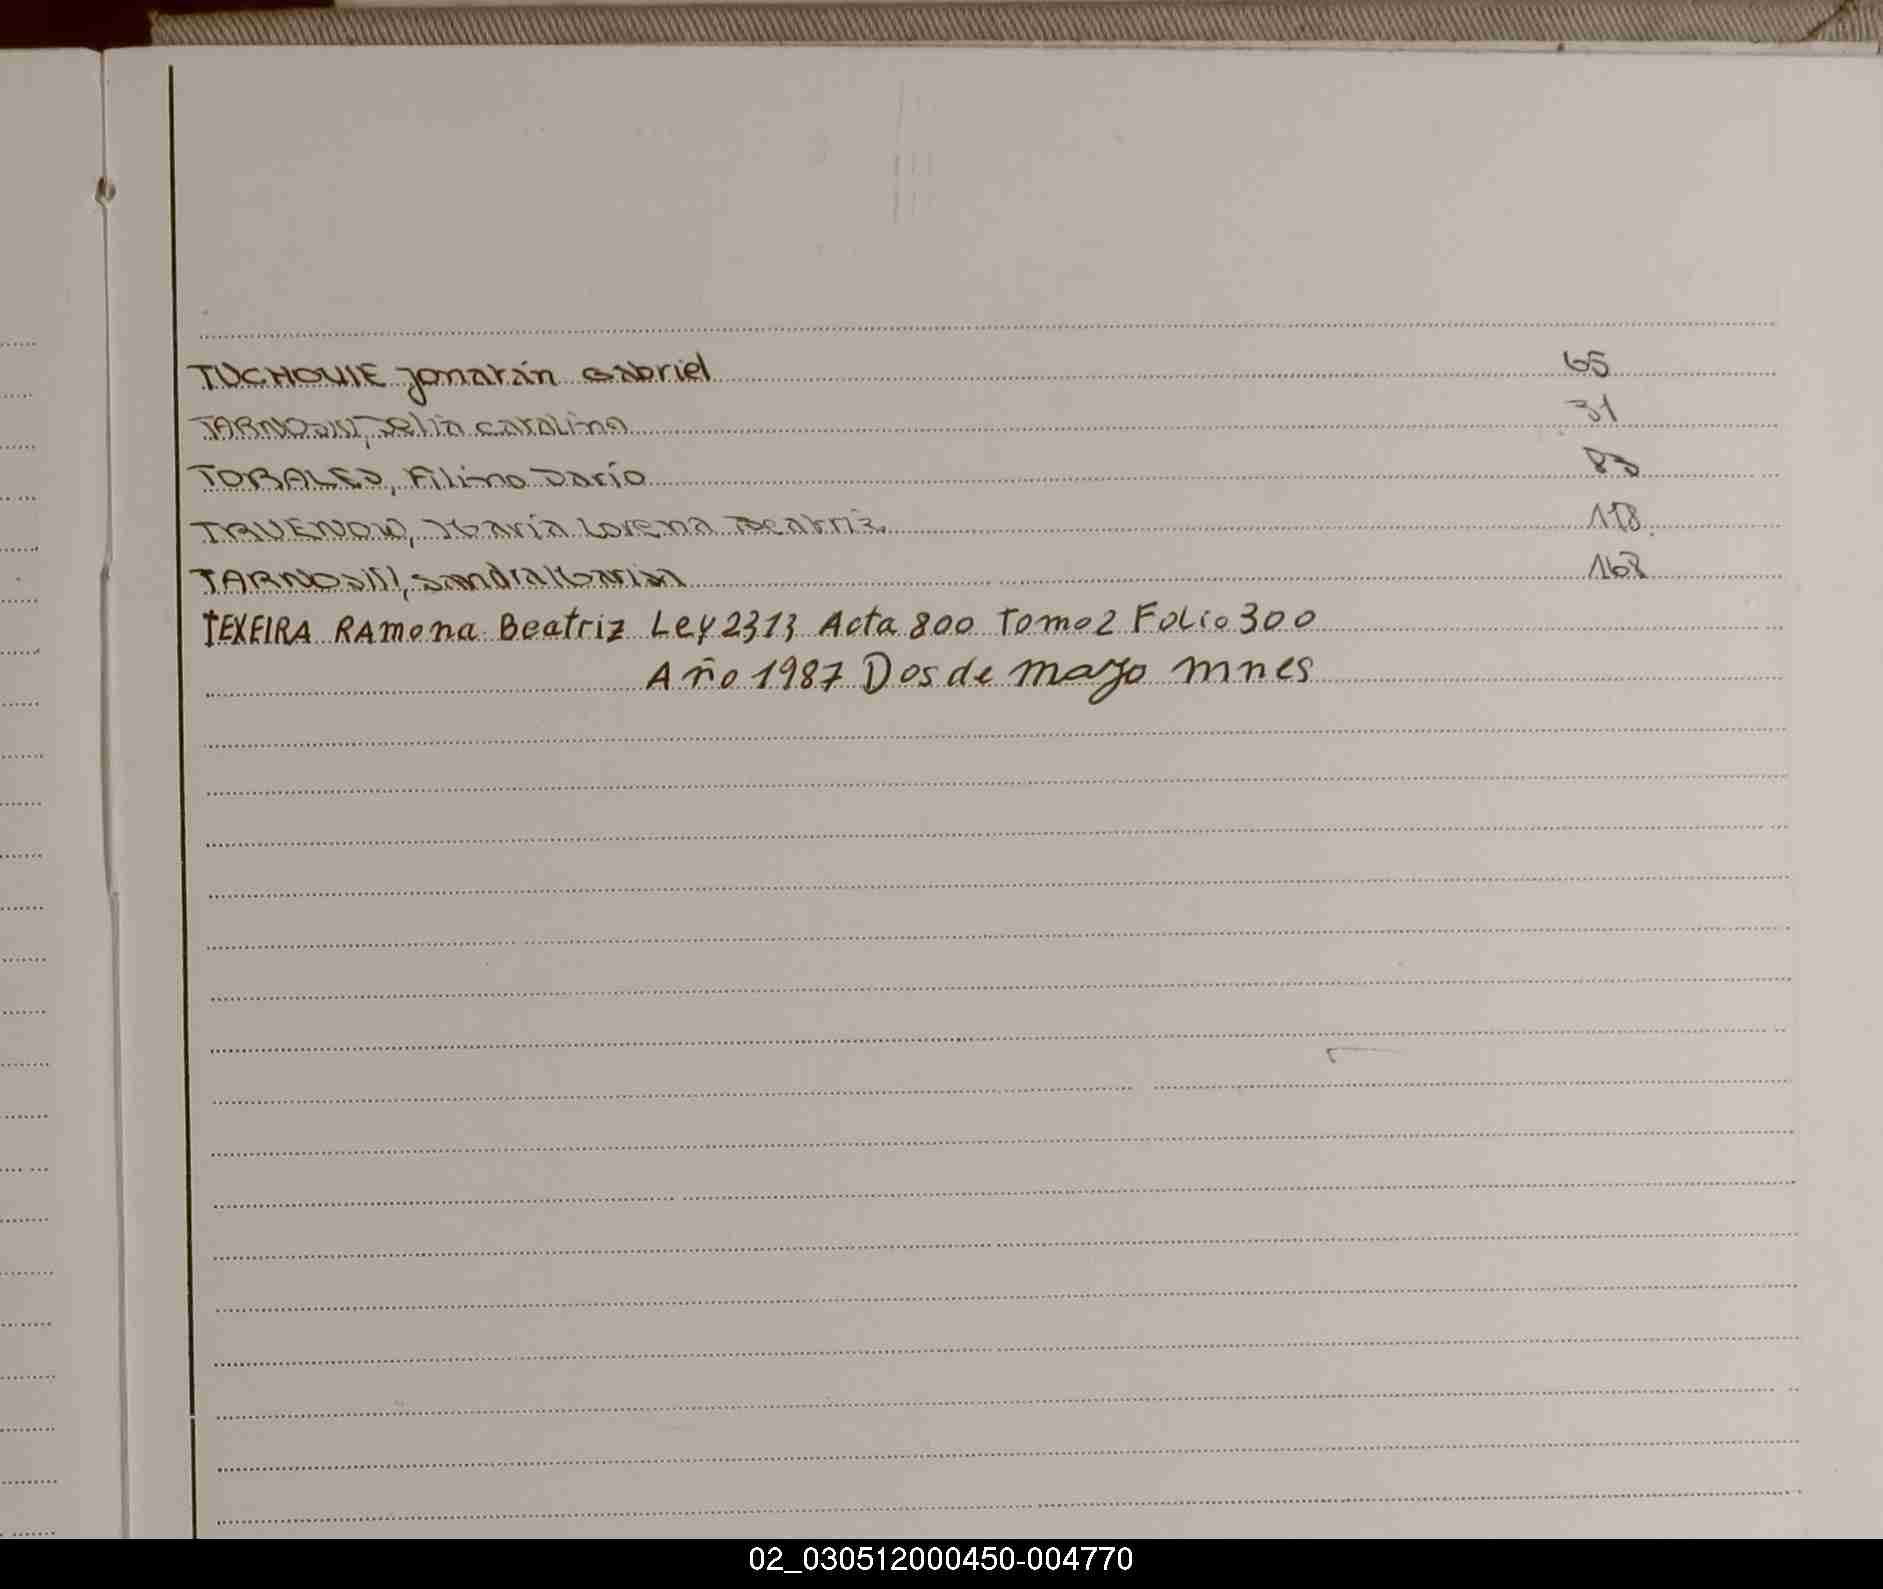 TUCHOVIE Jonatán Gabriel 65
TARNOSKI, Delia Carolina 31
TORALES, Filimo Darío 83
TRUENOW, María Lorena Beatriz. 118
TARNOSKI, Sandra 168
TEXEIRA RAmona Beatriz Ley 2313 Acta 800 Tomo 2 Folio 300
Año 1987 Dos de mayo mnes
02_030512000450-004770